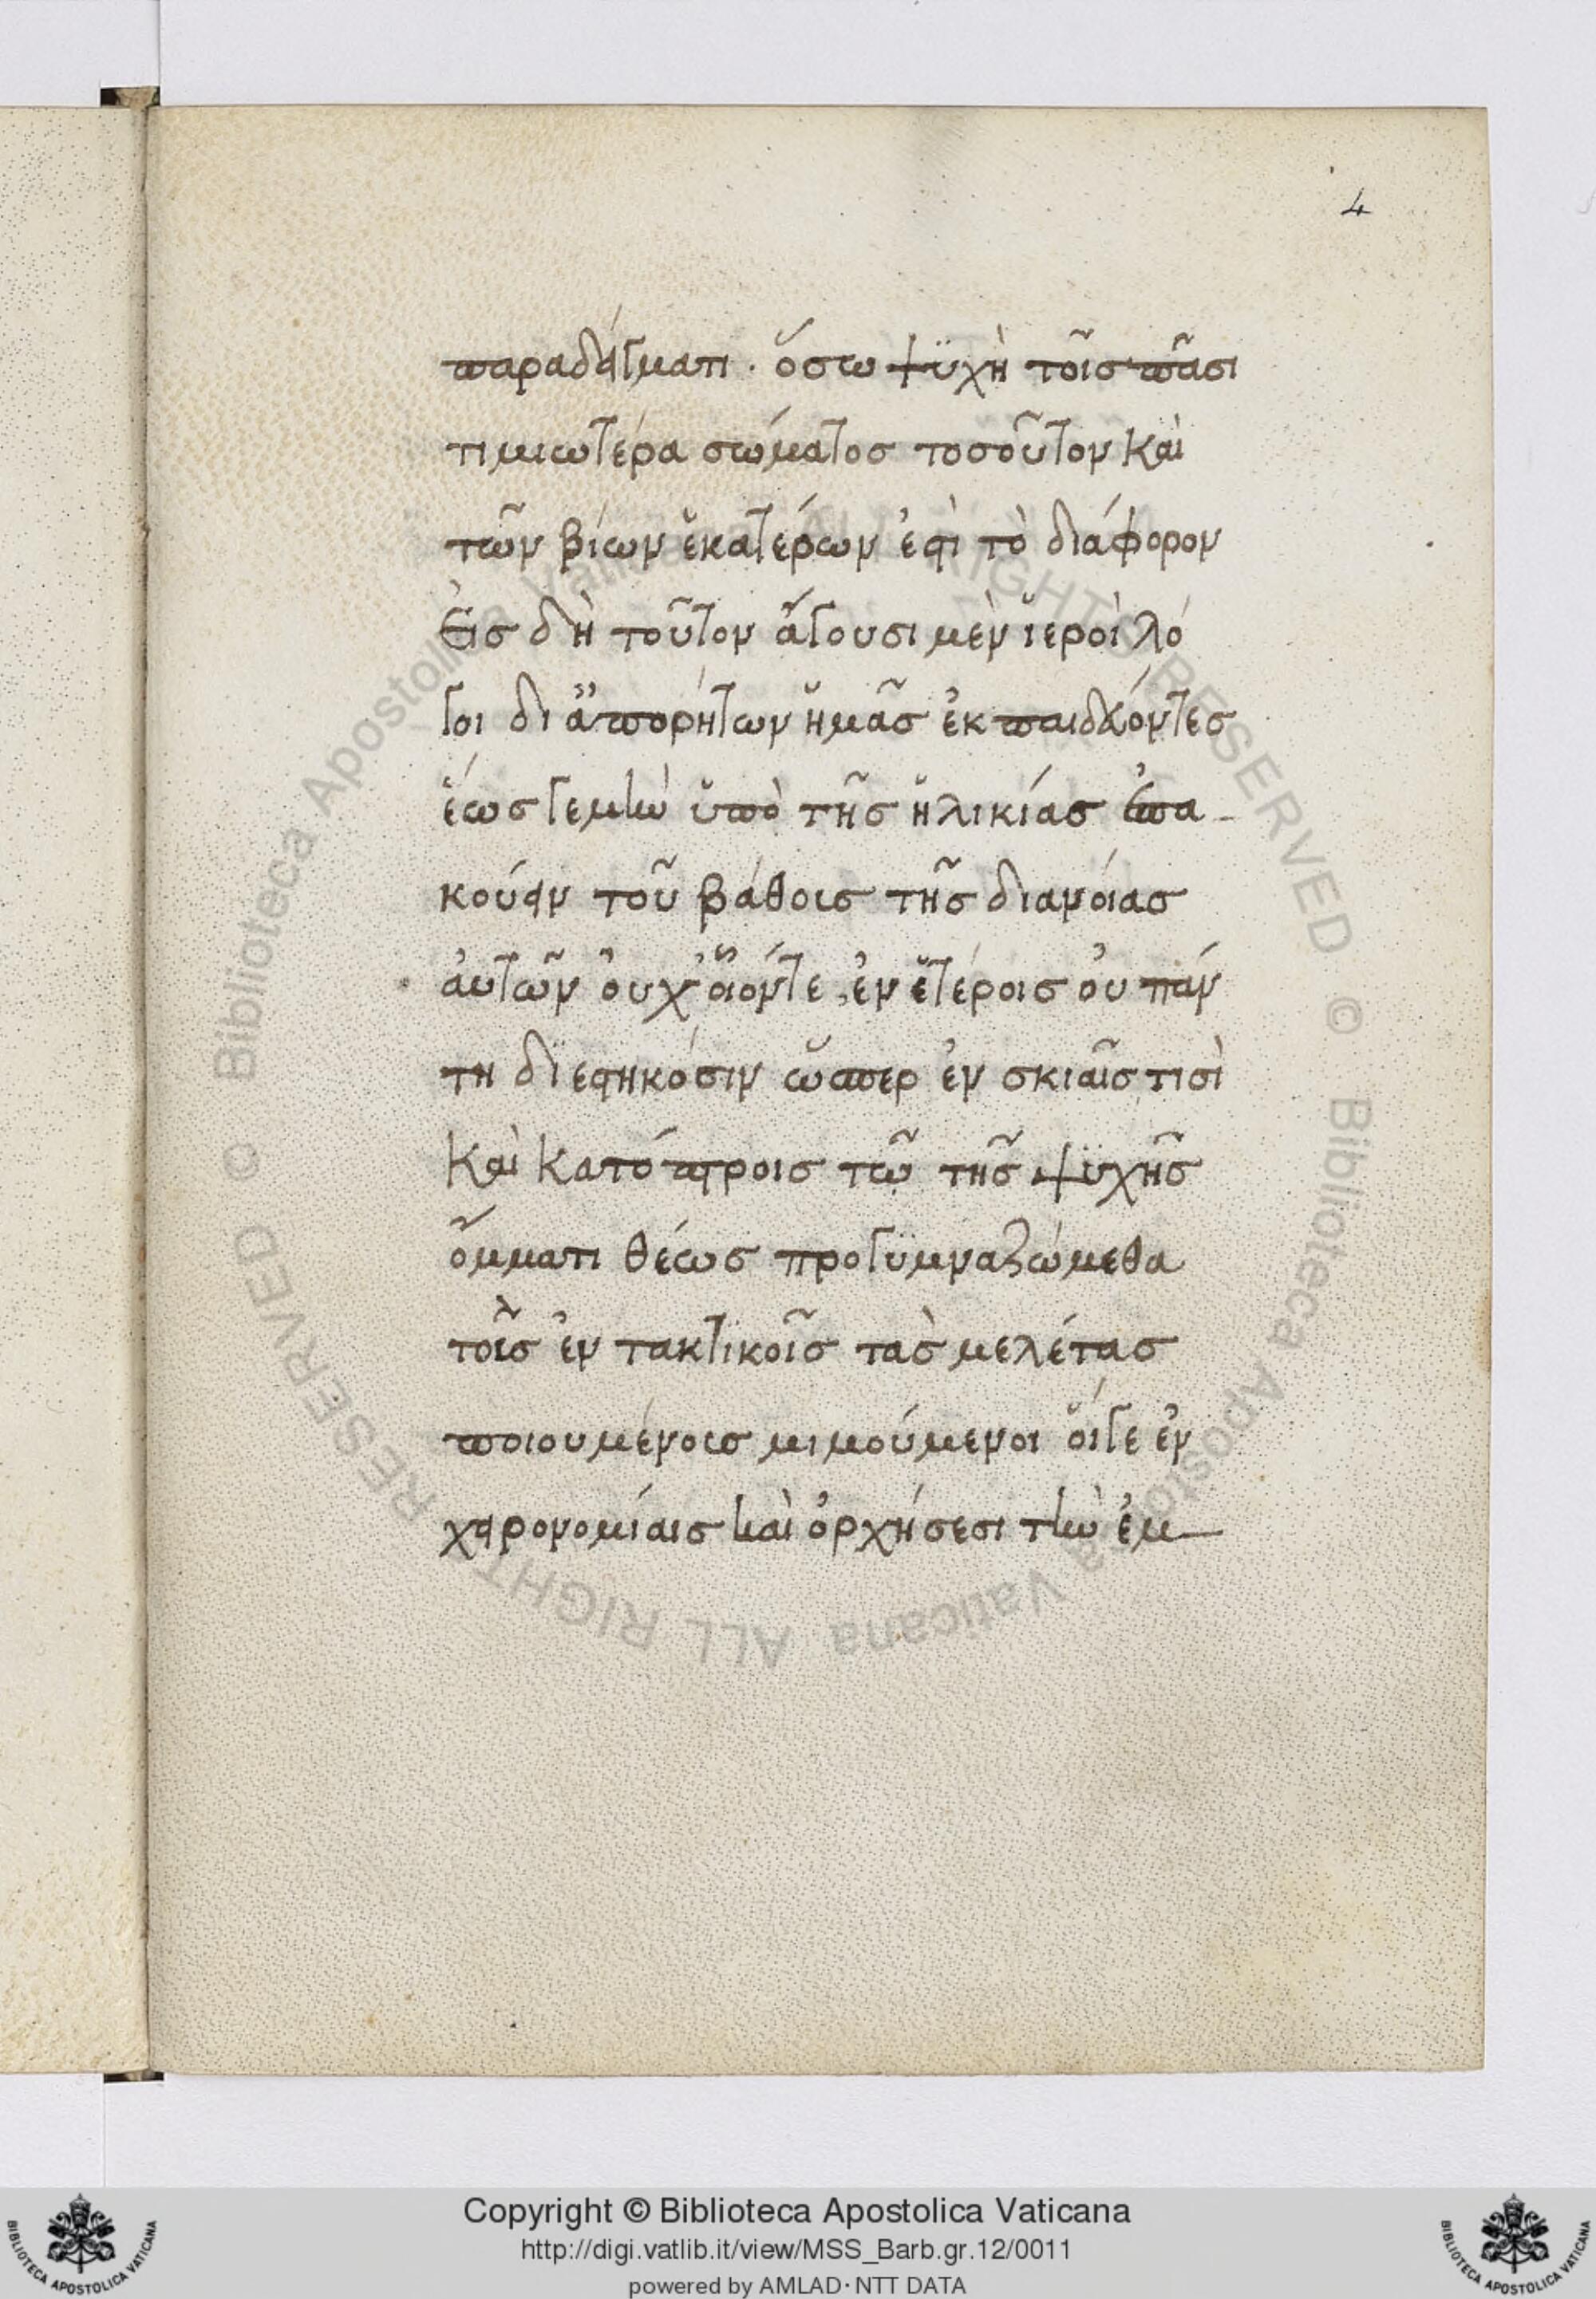 4
παραδείγματι · ὅσω ψϋχὴ τοῖς πᾶσι
τιμιωτέρα σώματος τοσοῦτον καὶ
τῶν βίων ἑκατέρων ἐστὶ τὸ διάφορον
Εἰς δὴ τοῦτον ἄγουσι μὲν ἱεροὶ λό
γοι δι ἀπορήτων ἡμᾶς ἐκπαιδεύοντες
ἕως γε μὴν ὑπὸ τῆς ἡλικίας ἐπα-
κούειν τοῦ βάθους τῆς διανοίας
ἀυτῶν ὀυχ οἷόντε, ἐν ἑτέροις ὀυ πάν
τη διεστηκόσιν ὥσπερ ἐν σκιαῖς τισὶ
καὶ κατόπτροις τῶ τῆς ψϋχῆς
ὄμματι θέως προγϋμναζώμεθα
τοῖς ἐν τακτικοῖς τὰς μελέτας
ποιουμένοις μιμούμενοι ὅιγε ἐν
χειρονομίαις καὶ ὀρχήσεσι τὴν ἐμ
Copyright © Biblioteca Apostolica Vaticana
http://digi.vatlib.it/view/MSS_Barb.gr.12/0011
powered by AMLAD·NTT DATA
BIBLIOTECA APOSTOLICA VATICANA
BIBLIOTECA APOSTOLICA VATICANA
© Biblioteca Apostolica Vaticana ALL RIGHTS RESERVED
© Biblioteca Apostolica Vaticana ALL RIGHTS RESERVED